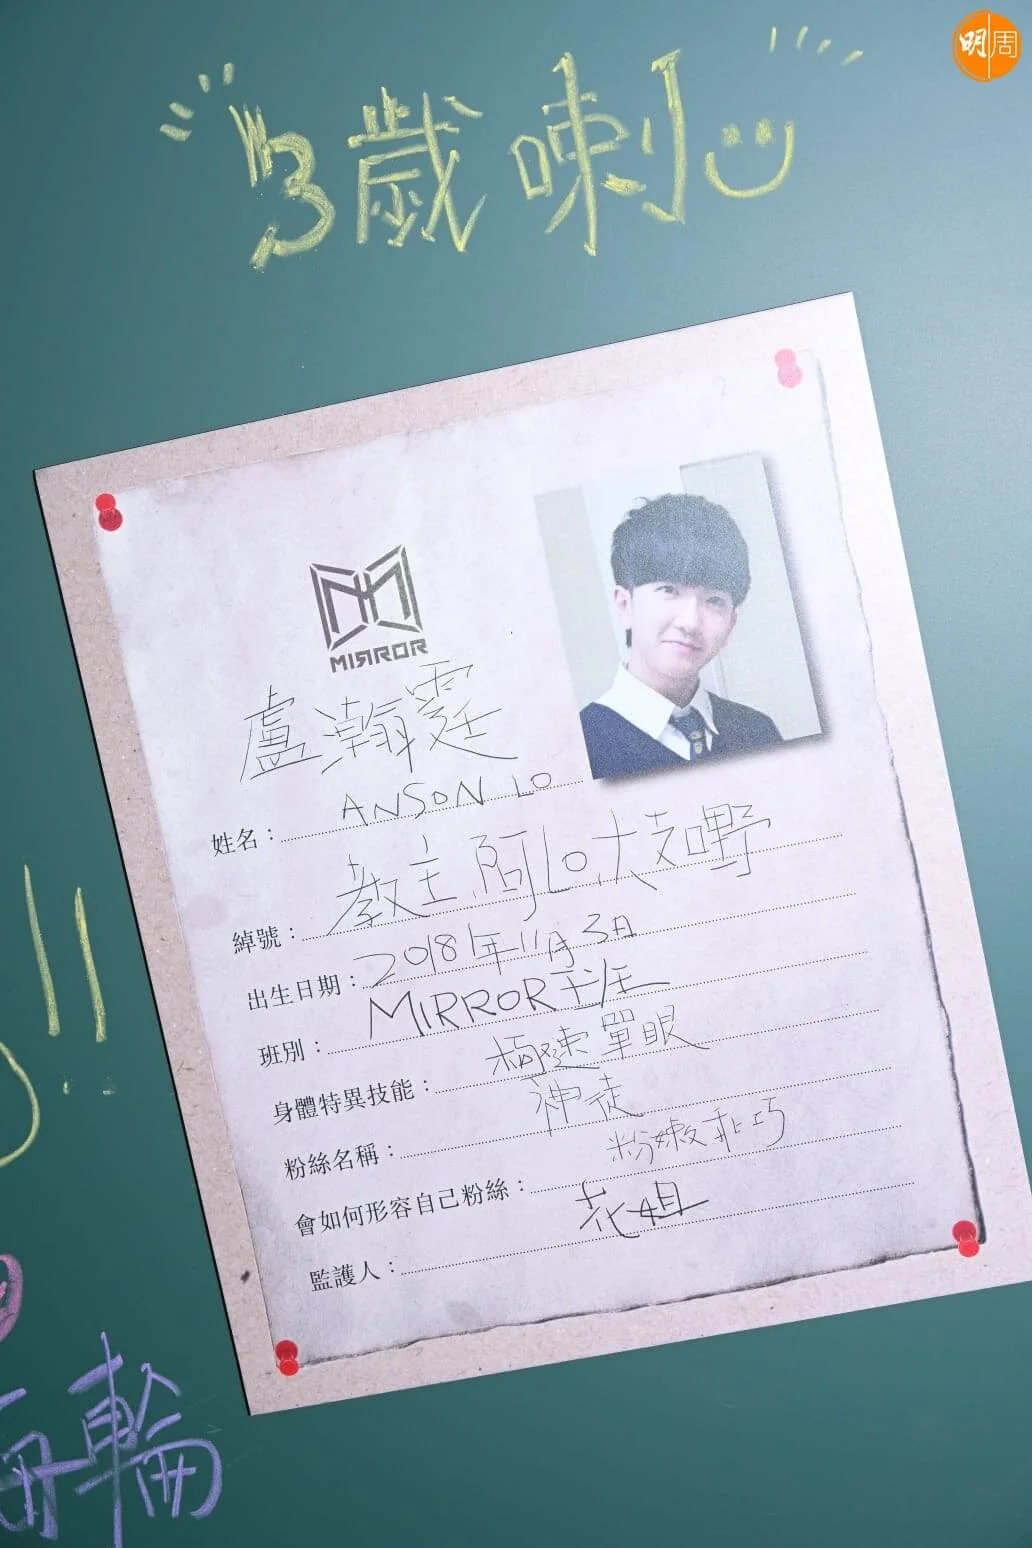 明周
3歲喇
MIRROR
盧瀚霆
ANSON LO
姓名：
教主,阿Lo,大支嘢
綽號：
2018年11月3日
出生日期：
MIRROR班
班別：
極速單眼
身體特異技能：
神徒
粉絲名稱：
粉嫩乖巧
會如何形容自己粉絲：
花姐
監護人：
輪